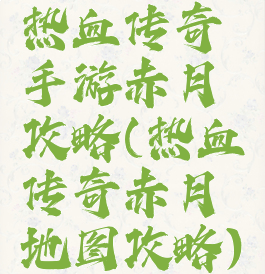 热血传奇
手游赤月
攻略(热血
传奇赤月
地图攻略)